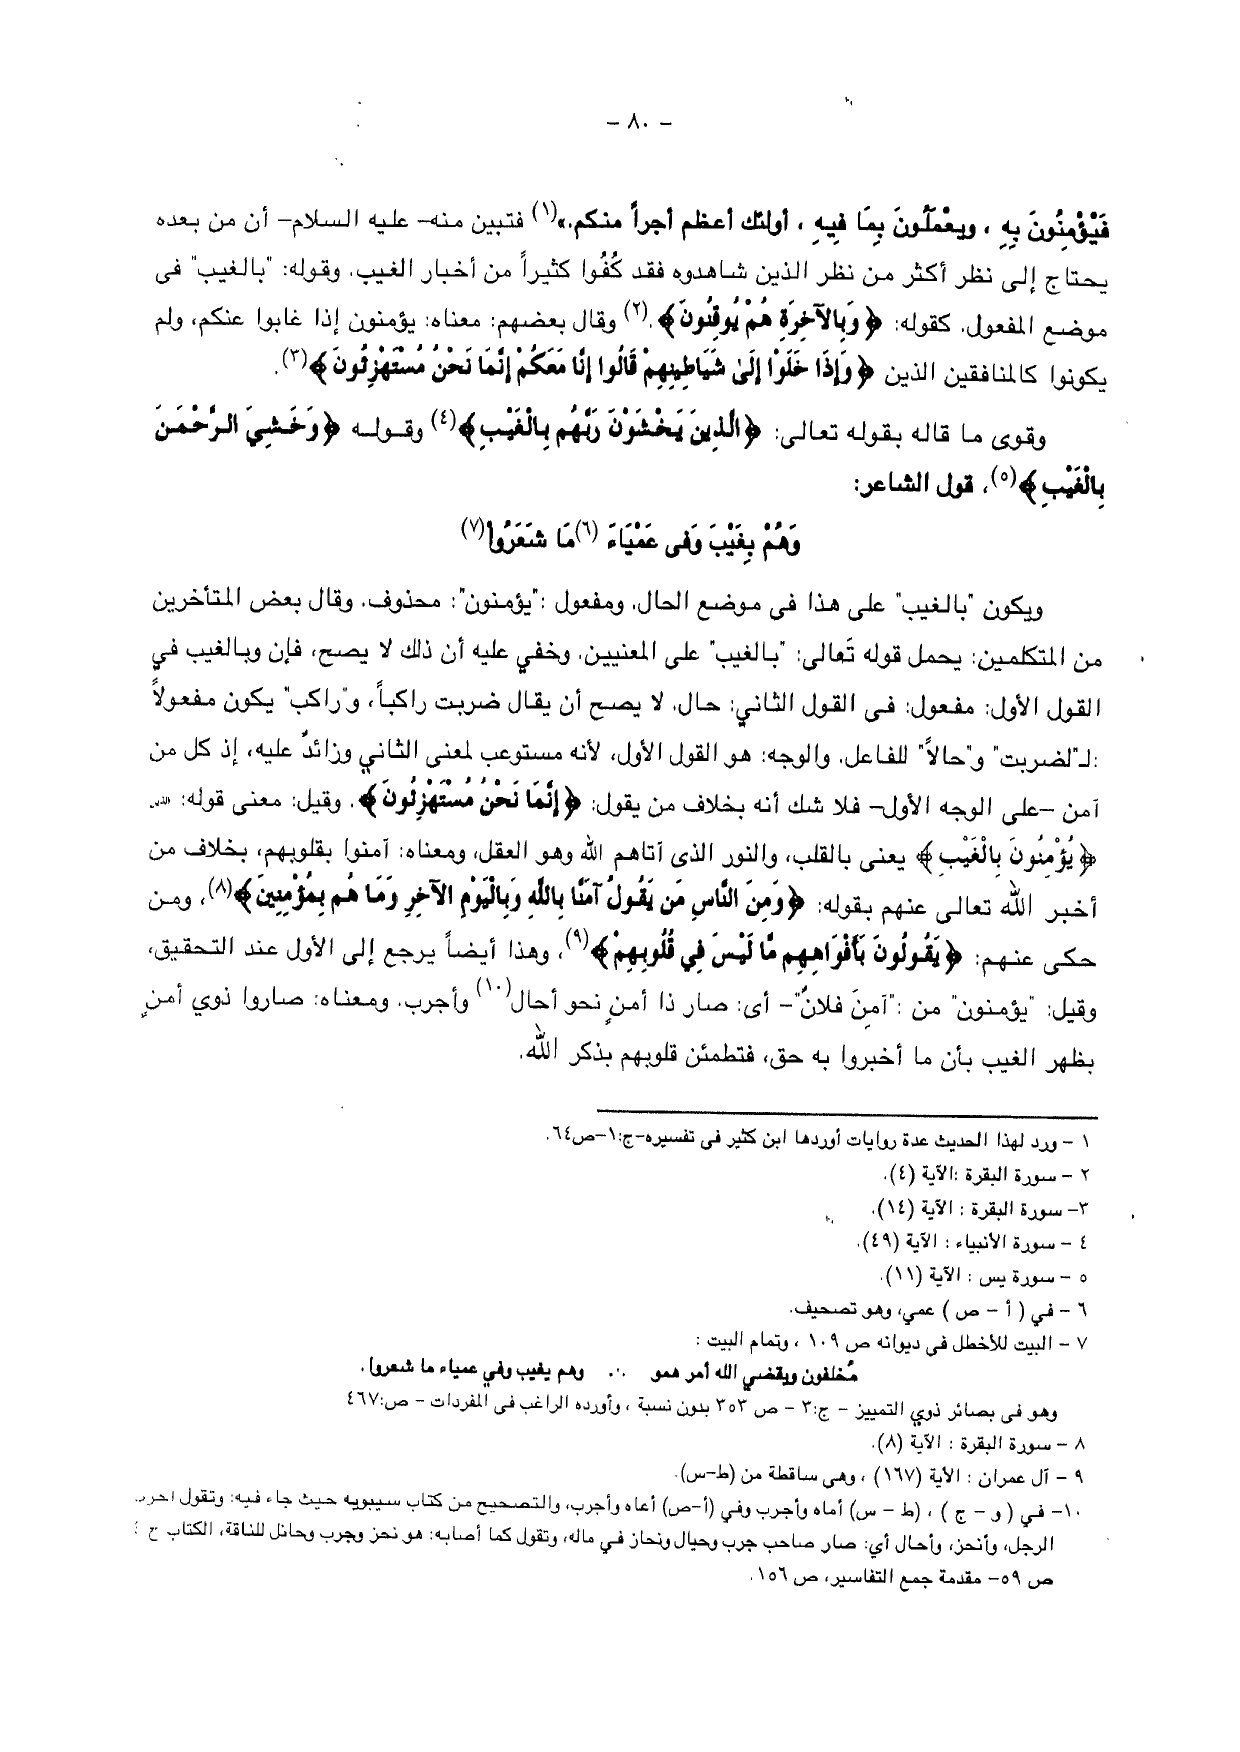 - ٨٠ -
فَيُؤْمِنُونَ بِهِ ، ويعْمَلُونَ بِمَا فِيهِ ، أولئك أعظم أجراً منكم.»(١) فتبين منه- عليه السلام- أن من بعده
يحتاج إلى نظر أكثر من نظر الذين شاهدوه فقد كُفُوا كثيراً من أخبار الغيب. وقوله: "بالغيب" فى
موضع المفعول. كقوله: ﴿ وَبِالآخِرَةِ هُمْ يُوقِنُونَ﴾.(٢) وقال بعضهم: معناه: يؤمنون إذا غابوا عنكم، ولم
يكونوا كالمنافقين الذين ﴿ وَإِذَا خَلَوْا إِلَىٰ شَيَاطِينِهِمْ قَالُوا إِنَّا مَعَكُمْ إِنَّمَا نَحْنُ مُسْتَهْزِئُونَ﴾(٣).
وقوى ما قاله بقوله تعالى: ﴿الَّذِينَ يَخْشَوْنَ رَبَّهُم بِالْغَيْبِ﴾(٤) وقوله ﴿وَخَشِيَ الرَّحْمَنَ
بِالْغَيْبِ﴾(٥)، قول الشاعر:
وَهُمْ بِغَيْبَ وَفى عَمْيَاءَ (٦)مَا شَعَرُوا(٧)
ويكون "بالغيب" على هذا فى موضع الحال. ومفعول :"يؤمنون": محذوف. وقال بعض المتأخرين
من المتكلمين: يحمل قوله تَعالى: "بالغيب" على المعنيين. وخفي عليه أن ذلك لا يصح، فإن وبالغيب في
القول الأول: مفعول: فى القول الثاني: حال. لا يصح أن يقال ضربت راكباً، و"راكب" يكون مفعولاً
:لـ"لضربت" و"حالاً" للفاعل. والوجه: هو القول الأول، لأنه مستوعب لمعنى الثاني وزائدٌ عليه، إذ كل من
آمن -على الوجه الأول- فلا شك أنه بخلاف من يقول: ﴿إِنَّمَا نَحْنُ مُسْتَهْزِئُونَ﴾. وقيل: معنى قوله: الذين
﴿يُؤْمِنُونَ بِالْغَيْبِ﴾ يعنى بالقلب، والنور الذى آتاهم الله وهو العقل، ومعناه: آمنوا بقلوبهم، بخلاف من
أخبر الله تعالى عنهم بقوله: ﴿وَمِنَ النَّاسِ مَن يَقُولُ آمَنَّا بِاللَّهِ وَبِالْيَوْمِ الآخِرِ وَمَا هُم بِمُؤْمِنِينَ﴾(٨)، ومن
حكى عنهم: ﴿يَقُولُونَ بَأَفْوَاهِهِم مَّا لَيْسَ فِي قُلُوبِهِمْ﴾(٩)، وهذا أيضاً يرجع إلى الأول عند التحقيق،
وقيل: "يؤمنون" من :"آمنَ فلانٌ"- أى: صار ذا أمنٍ نحو أحال(١٠) وأجرب. ومعناه: صاروا ذوي أمنٍ
بظهر الغيب بأن ما أخبروا به حق، فتطمئن قلوبهم بذكر الله.
١ - ورد لهذا الحديث عدة روايات أوردها ابن كثير فى تفسيره-ج:١-ص٦٤.
٢ - سورة البقرة :الآية (٤).
٣- سورة البقرة : الآية (١٤).
٤ - سورة الأنبياء : الآية (٤٩).
٥ - سورة يس : الآية (١١).
٦ - في ( أ - ص ) عمي، وهو تصحيف.
٧ - البيت للأخطل فى ديوانه ص ١٠٩ ، وتمام البيت :
مُخلفون ويقضي الله أمر همو ∴ وهم بغيب وفي عمياء ما شعروا.
وهو فى بصائر ذوي التمييز - ج:٣ - ص ٣٥٣ بدون نسبة ، وأورده الراغب فى المفردات - ص:٤٦٧
٨ - سورة البقرة : الآية (٨).
٩ - آل عمران : الآية (١٦٧) ، وهى ساقطة من (ط-س).
١٠- في ( و - ج ) ، (ط - س) أماه وأجرب وفي (أ-ص) أعاه وأجرب، والتصحيح من كتاب سيبويه حيث جاء فيه: وتقول أجرب
الرجل، وأنحز، وأحال أي: صار صاحب جرب وحيال ونحاز في ماله، وتقول كما أصابه: هو نحز وجرب وحائل للناقة، الكتاب ج ٤
ص ٥٩- مقدمة جمع التفاسير، ص ١٥٦.